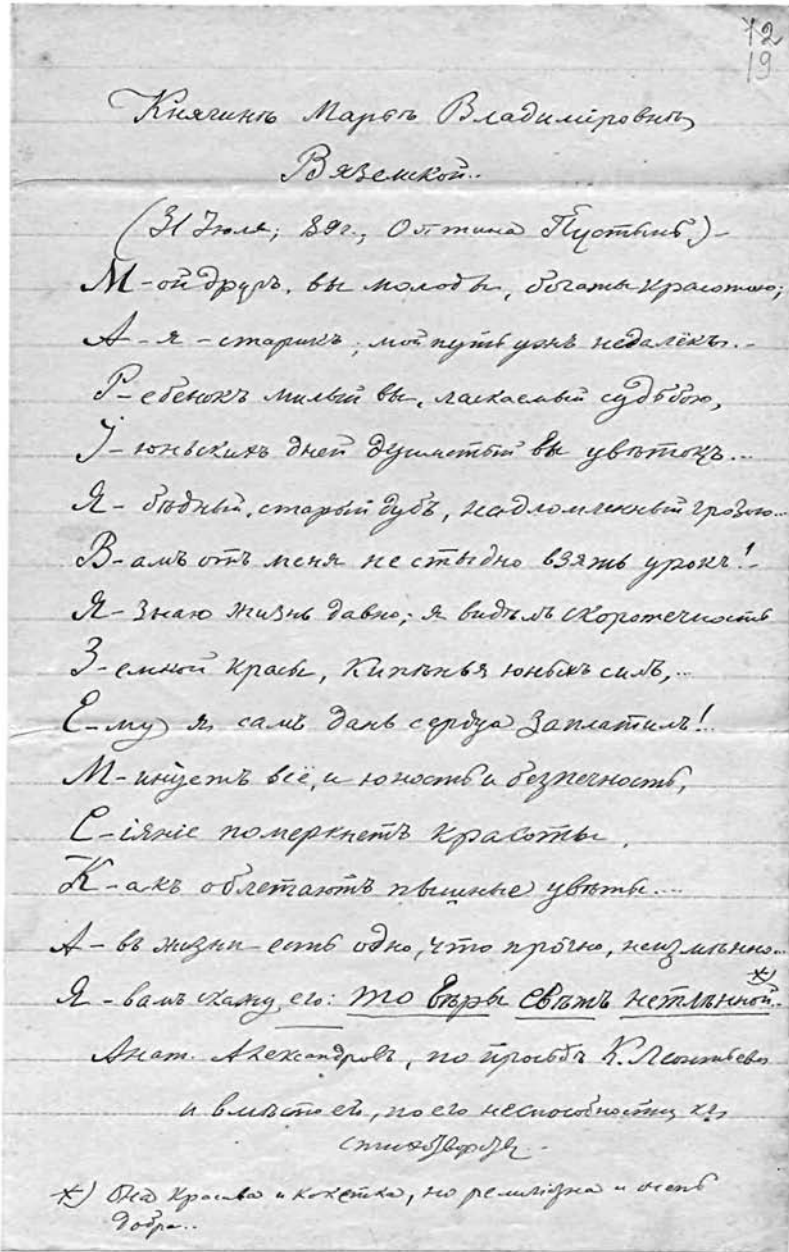 12
19
Княгинѣ Маріѣ Владиміровнѣ
Вяземской..
(31 Іюля; 89 г., Оптина Пустынь) –
М-ой другъ, вы молоды, богаты красотою;
А-я – старикъ; мой путь ужъ недалёкъ. –
Р-ебенокъ милый вы, ласкаемый судьбою,
І-юньскихъ дней душистый вы цвѣтокъ...
Я- бѣдный, старый дубъ, надломленный грозою...
В-амъ отъ меня не стыдно взять урокъ! –
Я- знаю жизнь давно; я видѣлъ скоротечность
З-емной красы, кипѣнья юныхъ силъ,...
Е-му я самъ дань сердца заплатилъ!..
М-инуетъ всё, и юность и безпечность,
С-іяніе померкнетъ красоты,
К-акъ облетаютъ пышные цвѣты....
А- въ жизни есть одно, что прочно, неизмѣнно...
Я- вамъ скажу его: то вѣры свѣтъ нетлѣнной. *)
Анат. Александровъ, по просьбѣ К. Леонтьева
и вмѣсто его, по его неспособности къ
стихотворству. –
*) Она красива и кокетка, но религіозна и очень
добра..